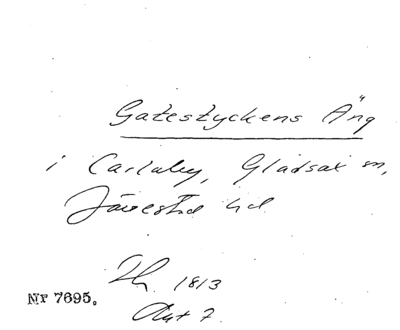 Gatestyckens Äng
i Carlaby, Gladsax sn,
Järrestad hd
Th. 1813
Akt 7.
Nr 7695.